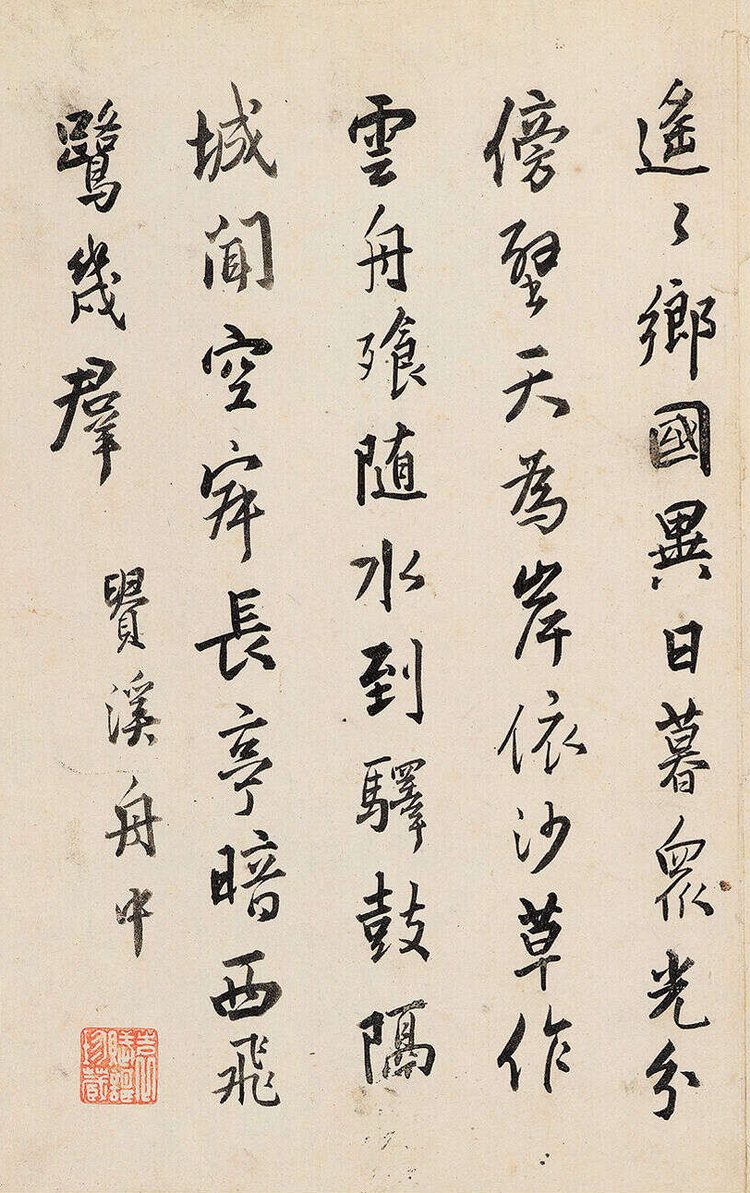 遙〻鄉國異日暮眾光分
傍天為岸依沙草作
雲舟飱随水到驛鼓隔
城聞空長亭暗西飛
鷺幾羣
貴溪舟中